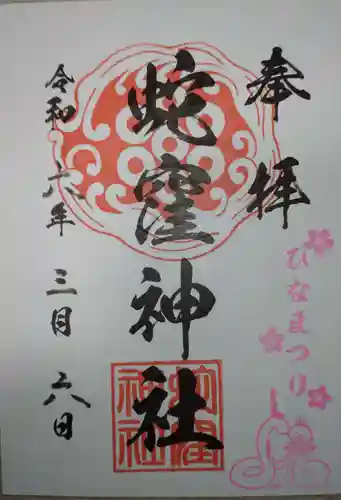 奉拝
ひなまつり
蛇窪神社
蛇窪神社
令和六年 三月 六日